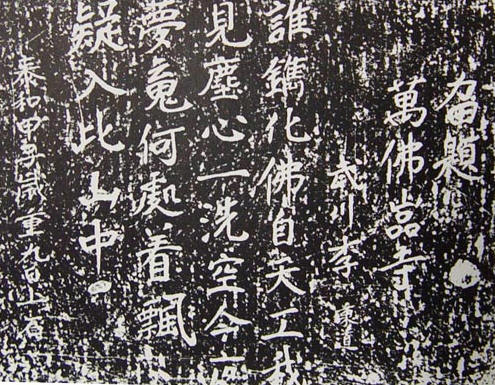 留題
萬佛嵓寺
武川李
誰鐫化佛自天工我
見塵心一洗空今夜
夢魂何處着飄
疑入此山中
泰和甲子歲重九日上石